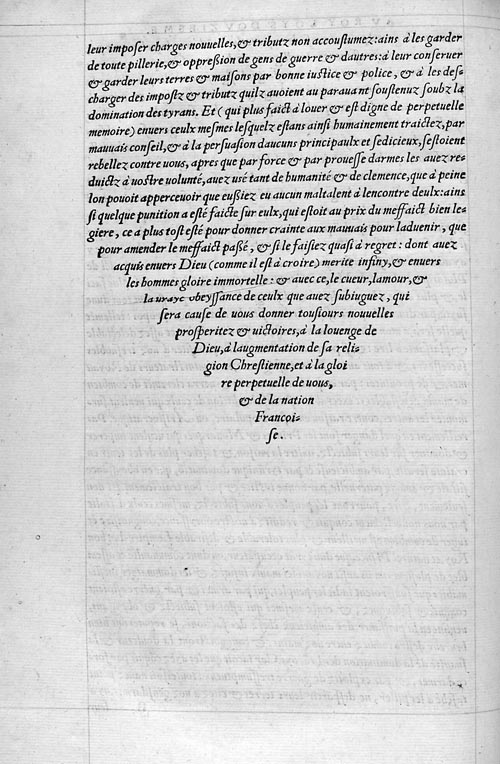 leur imposer charges nouuelles,& tributz non accoustumez:ains à les garder
de toute pillerie,& oppreßion de gens de guerre & dautres:à leur conseruer
& garder leurs terres & maisons par bonne iustice & police, & à les des-
charger des impostz & tributz quilz auoient au parauant soustenuz soubz la
domination des tyrans. Et ( qui plus faict à louer & est digne de perpetuelle
memoire) enuers ceulx mesmes lesquelz estans ainsi humainement traictez, par
mauuais conseil,& à la persuasion daucuns principaulx et sedicieux, sestoient
rebellez contre uous, apres que par force & par prouesse darmes les auez re-
duictz à uostre uolunté,auez usé tant de humanité & de clemence,que à peine
lon pouoit apperceuoir que eußiez eu aucun maltalent à lencontre deulx:ains
si quelque punition a esté faicte sur eulx,qui estoit au prix du meffaict bien le-
giere, ce a plus tost esté pour donner crainte aux mauuais pour laduenir, que
pour amender le meffaict paßé , & si le faisiez quasi à regret : dont auez
acquis enuers Dieu (comme il est à croire) merite infiny,& enuers
les hommes gloire immortelle : & auec ce,le cueur,lamour,&
la uraye obeyssance de ceulx que auez subiuguez , qui
sera cause de uous donner tousiours nouuelles
prosperitez & uictoires,à la louenge de
Dieu,à laugmentation de sa reli-
gion Chrestienne,et à la gloi
re perpetuelle de uous,
& de la nation
Francoi-
se.